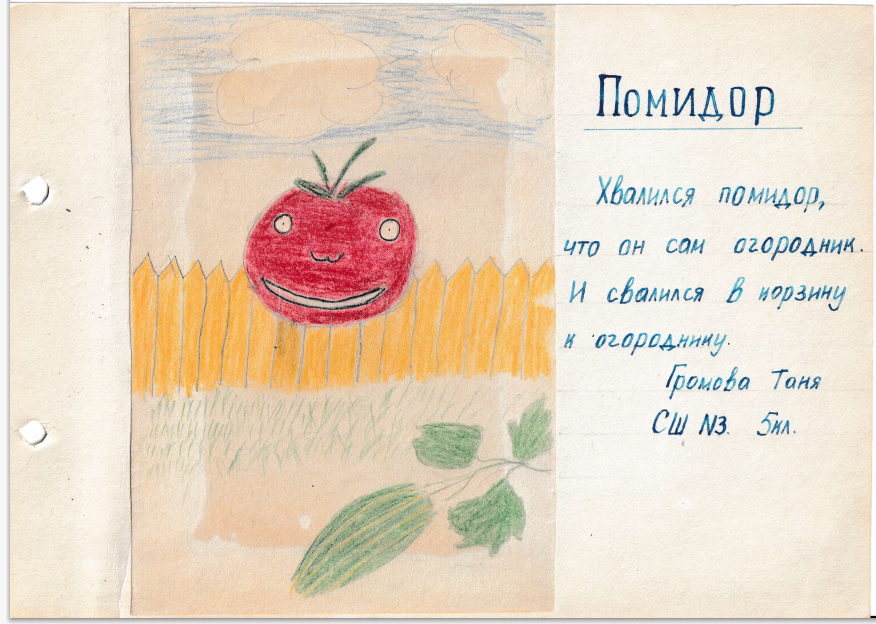 Помидор
Хвалился помидор,
что он сам огородник.
И свалился в корзину
к огороднику.
Громова Таня
СШ №3. 5кл.